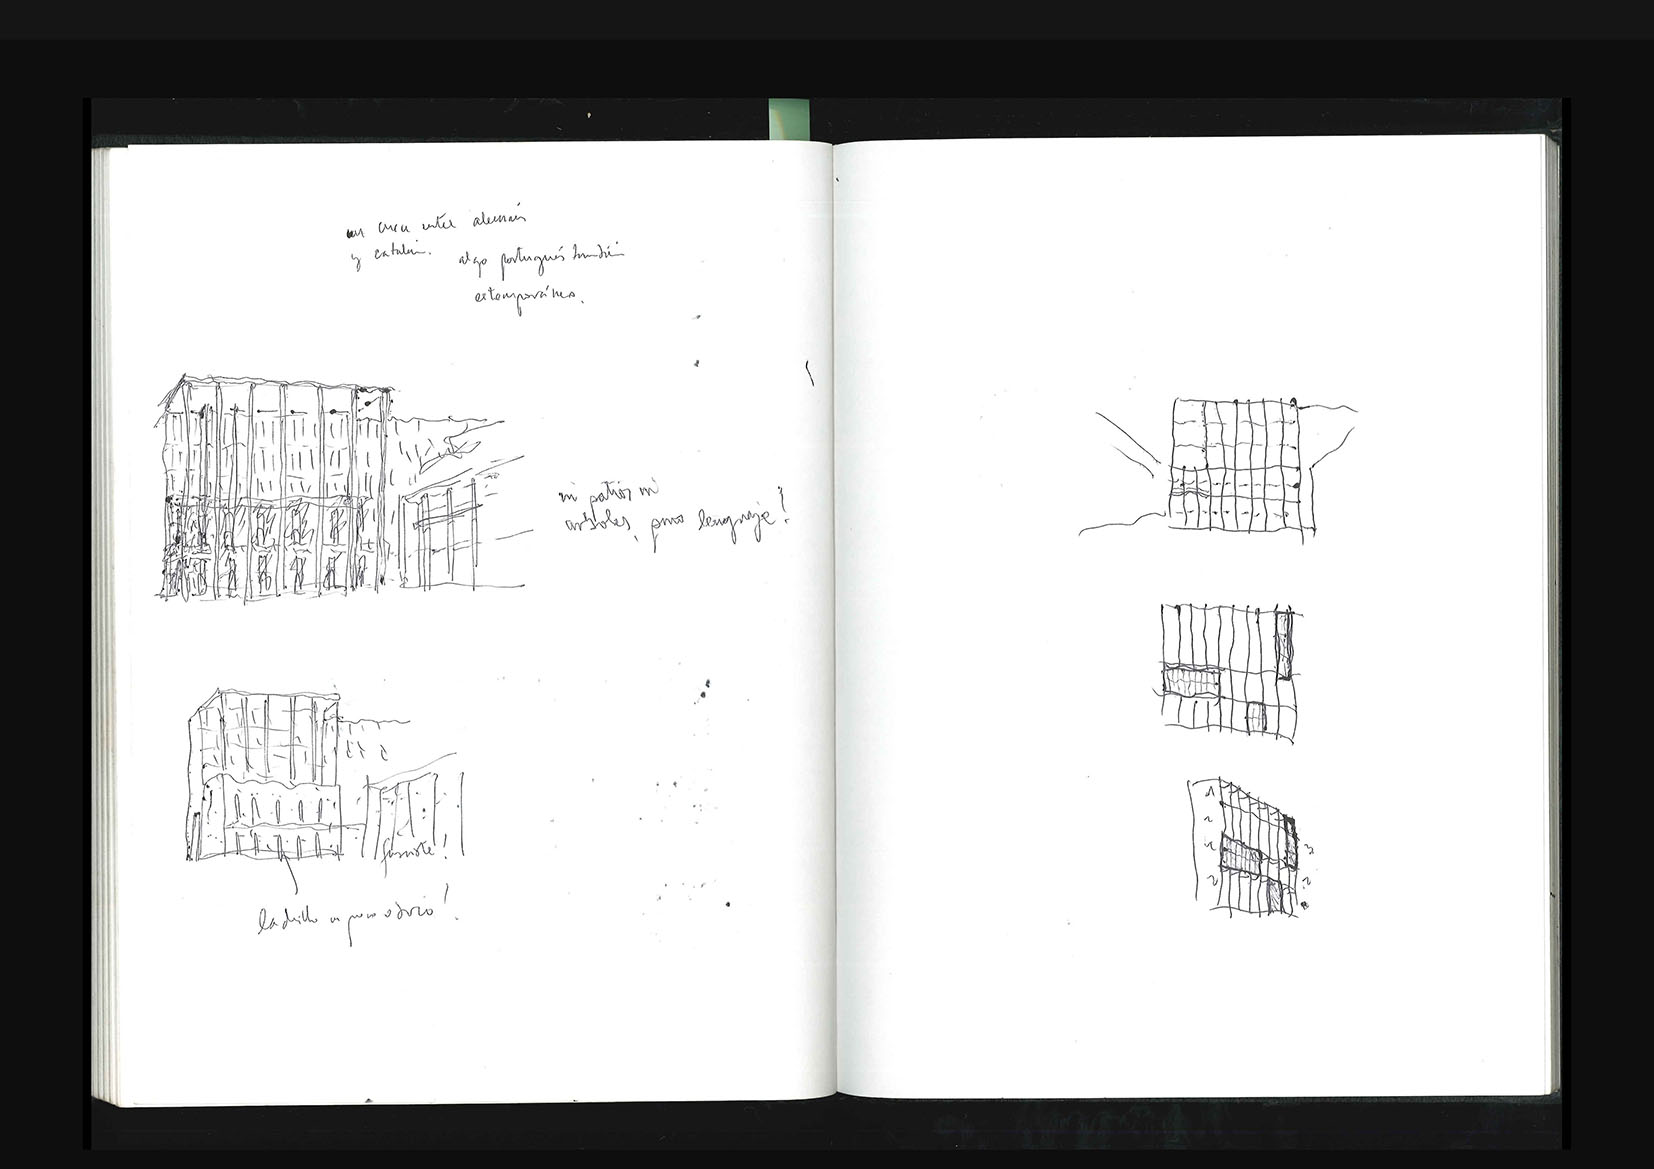 un cruce entre alemán
y catalán. algo portugués también
extemporáneo.
ni patios ni
árboles, puro lenguaje!
ladrillo o